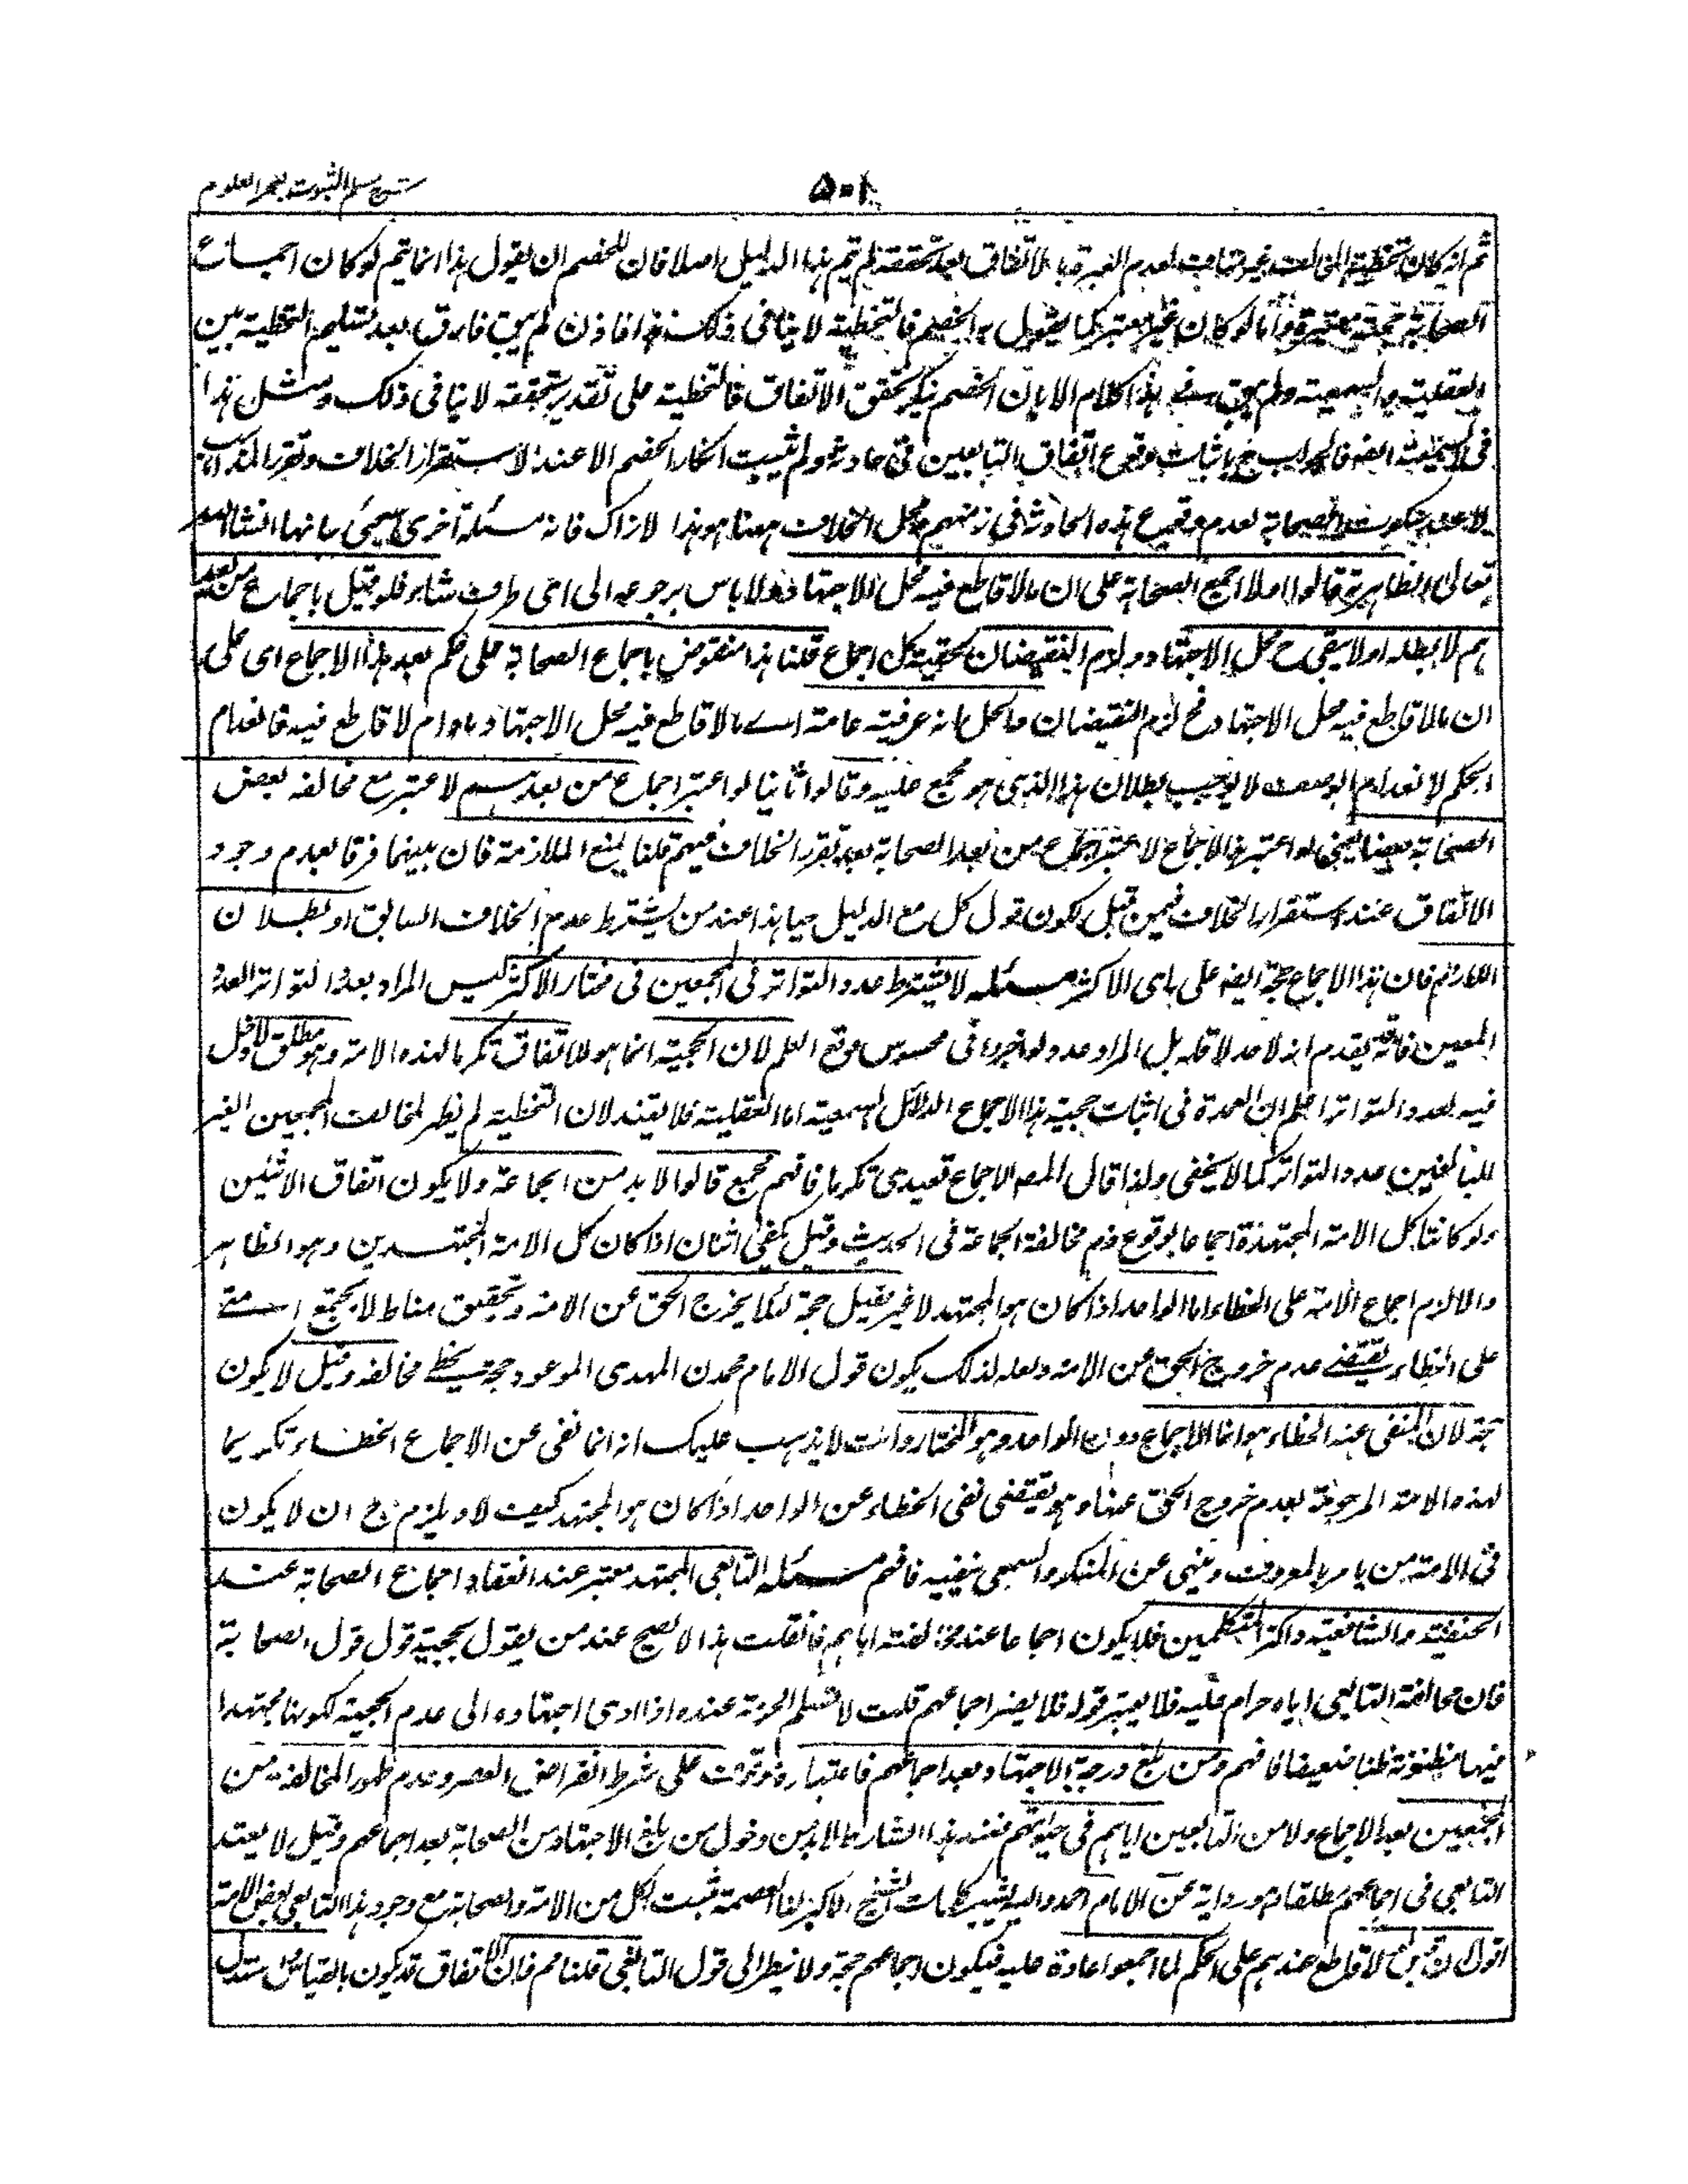 شرح مسلم الثبوت لبحر العلوم
۵۰۱
ثم انه كان تخطية المخالف غير لعدم العبرة بالاتفاق بعد تحققه لم يتم هذا الدليل اصلا فان للخصم ان يقول هذا انما يتم لو كان اجماع
الصحابة حجة معتبرة واما لو كان غير معتبر كما يقول به الخصم فالتخطية لا ينافى ذلك فاذن لم يبق فارق بعد تسليم التخطية بين
العقلية والسمعية ولم يبق فى هذا كلام الا بان الخصم ينكر تحقق الاتفاق فالتخطية على تقدير تحققه لا ينافى ذلك ومثل هذا
فى السمعية ايضا فالجواب ح باثبات وقوع اتفاق التابعين فى حادثة ولم يثبت انكار الخصم الا عند الاستقرار الخلاف وتقرر المذاهب
لا عند سكوت الصحابة لعدم وقوع هذه الحادثة فى زمنهم ومحل الخلاف ههنا هو هذا لا ذاك فانه مسئلة اخرى سيجئ بيانها انشاء الله
تعالى الظاهرية قالوا اولا اجمع الصحابة على ان ما لا قاطع فيه محل للاجتهاد ولا باس برجوعه الى اى طرف شاء فلو قيل باجماع من بعد
هم لابطله اولا يبقى ح محل الاجتهاد ولزم النقيضان لحقية كل اجماع قلنا هذا منقوض باجماع الصحابة على حكم بعد هذا الاجماع اى على
ان ما لا قاطع فيه محل الاجتهاد فح لزم النقيضان والحل انه عرفية عامة اے ما لا قاطع فيه محل الاجتهاد ما دام لا قاطع فيه فانعدام
الحكم لانعدام الوصف لا يوجب بطلان هذا الذى هو مجمع عليه وقالوا ثانيا لو اعتبر اجماع من بعدهم لا عتبر مع مخالفة بعض
الصحابة بعضا يعنى لو اعتبر هذا الاجماع لا عتبر اجماع من بعد الصحابة بعد تقرر الخلاف فيهم قلنا يمنع الملازمة فان بينهما فرقا بعدم وجود
الاتفاق عند استقرار الخلاف فيمن قبل لكون قول كل مع الدليل حيا هذا عند من يشترط عدم الخلاف السابق او بطلان
اللازم فان هذا الاجماع حجة ايضا على راى الاكثر مسئله لا يشترط عدد التواتر فى المجمعين فى مختار الاكثر ليس المراد بعدد التواتر العدد
المعين فانه يقدم انه لا حد لاقله بل المراد عدد لو اخبروا فى محسوس وقع العلم لان الحجية انما هو للاتفاق تكريما لهذه الامة وهو مطلق لا دخل
فيه لعدد التواتر اعلم ان العمدة فى اثبات حجية هذا الاجماع الدلائل السمعية اما العقلية فلا يفيد لان التخطية لم يظهر لمخالف المجمعين الغير
البالغين عدد التواتر كما لا يخفى ولذا قال المص الاجماع تعبدى تكريما فافهم مجمع قالوا لا بد من الجماعة ولا يكون اتفاق الاثنين
ولو كانتا كل الامة المجتهدة اجماعا لوقوع ذم مخالفة الجماعة فى الحديث وقيل يكفى اثنان اذا كان كل الامة المجتهدين وهو الظاهر
والا لزم اجماع الامة على الخطاء اما الواحد اذا كان هو المجتهد لا غير فقيل حجة لئلا يخرج الحق عن الامة وتحقيق مناط لا يجتمع امتے
على الخطاء يقتضے عدم خروج الحق عن الامة ولعله لذلك يكون قول الامام محمدن المهدى الموعود حجة يخطے مخالفه وقيل لا يكون
حجة لان المنفى عنه الخطاء هو انما الاجماع دون الواحد وهو المختار وانت لا يذهب عليك انه انما نفى عن الاجماع الخطاء تكريما
لهذه الامة المرحومة بعدم خروج الحق عنها وهو يقتضى نفى الخطاء عن الواحد اذا كان هو المجتهد كيف لا ويلزم ح ان لا يكون
فى الامة من يامر بالمعروف وينهى عن المنكر والسمعى ينفيه فافهم مسئله التابعى المجتهد معتبر عند انعقاد اجماع الصحابة عند
الحنفية والشافعية واكثر المتكلمين فلا يكون اجماعا عند مخالفته اياهم فان قلت هذا لا يصح عند من يقول بحجية قول الصحابة
فان مخالفة التابعى اياه حرام عليه فلا يعتبر قوله فلا يضر اجماعهم قلت لا نسلم الحرمة عنده اذا ادى اجتهاده الى عدم الحجية لكونها مجتهدا
فيها مظنونة ظنا ضعيفا فافهم ومن بلغ درجة الاجتهاد بعد اجماعهم فاعتباره موقوف على شرط انقراض العصر وعدم ظهور المخالفة من
المجمعين بعد الاجماع ولا من التابعين اياهم فى حيوتهم فعند هذا الشارط لا بد من دخول من بلغ الاجتهاد من الصحابة بعد اجماعهم وقيل لا يعتد
التابعى فى اجماعهم مطلقا وهو رواية عن الامام احمد واليه يشير كلمات الشيخ الاكبر لنا العصمة ثبت لكل من الامة والصحابة مع وجود هذا التابعى بعض الامة
اقول لا قاطع عندهم على الحكم لما اجمعوا عادة عليه فيكون اجماعهم حجة ولا ينظر الى قول التابعى قلنا مم فان الاتفاق قد يكون بالقياس